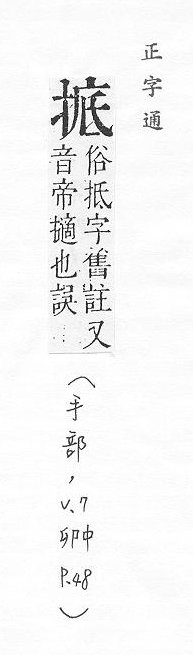 正字通
掋
俗抵字舊註又
音帝擿也誤…
(手部, V.7 卯中 P.48)